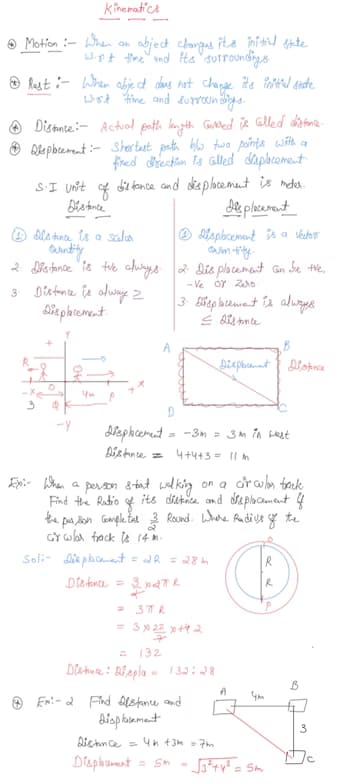 Kinematics
Motion :- When an object changes its initial state
w.r.t time and its surroundings
Rest :- When object does not change its initial state
w.r.t time and surroundings.
Distance:- Actual path length Covered is Called distance.
Displacement :- Shortest path b/w two points with a
fixed direction is Called displacement.
S.I Unit of distance and displacement is meter.
Distance
Displacement
① Distance is a scalar
Quantity
2. Distance is +ve always.
3. Distance is always ≥
Displacement.
① Displacement is a Vector
Quantity.
2. Displacement Can be +ve,
-ve Or Zero.
3. Displacement is always
≤ Distance
Y
+
R
-X
O
4m
P
+ X
3
Q
-Y
A
B
Displacement
Distance
D
C
Displacement = -3m = 3m in west
Distance = 4+4+3 = 11 m
Ex:- When a person start walking on a circular track
Find the Ratio of its distance and displacement if
the person Completes 3/2 Round. Where Radius of the
Circular track is 14 m.
Sol:- Displacement = 2R = 28m
Distance = 3/2 × 2πR
= 3πR
= 3 × 22/7 × 14 2
= 132
Distance : Displa = 132 : 28
R
R
P
Ex:- 2 Find Distance and
Displacement
Distance = 4m + 3m = 7m
Displacement = 5m = √3²+4² = 5m
A
4m
B
3
C